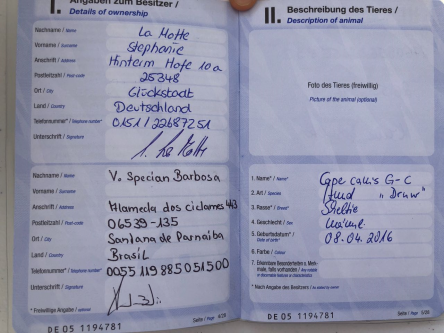 I. Angaben zum Besitzer /
Details of ownership
Nachname / Name La Motte
Vorname / Surname Stephanie
Anschrift / Address Hinterm Hofe 10a
Postleitzahl / Post-code 25348
Ort / City Glückstadt
Land / Country Deutschland
Telefonnummer* / Telephone number* 0151/22687251
Unterschrift / Signature
Nachname / Name V. Specian Barbosa
Vorname / Surname
Anschrift / Address Alameda dos ciclames 443
Postleitzahl / Post-code 06539-135
Ort / City Santana de Parnaíba
Land / Country Brasil
Telefonnummer* / Telephone number* 0055 119 885051500
Unterschrift / Signature
* Freiwillige Angabe / optional
Seite / Page 4/29
DE 05 1194781
II. Beschreibung des Tieres /
Description of animal
Foto des Tieres (freiwillig)
Picture of the animal (optional)
1. Name* / Name* Cape Callis G-C
2. Art / Species Hund "Draw"
3. Rasse* / Breed* Sheltie
4. Geschlecht / Sex männl.
5. Geburtsdatum* / Date of birth* 08.04.2016
6. Farbe / Colour
7. Besondere Kennzeichen o. Merkmale, falls vorhanden /
* Nach Angaben des Besitzers /
Seite / Page
DE 05 1194781